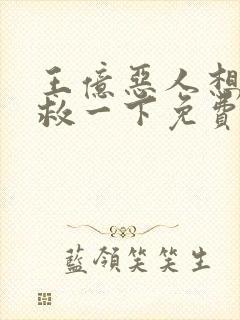 王億惡人想
救一下免費
藍領笑笑生